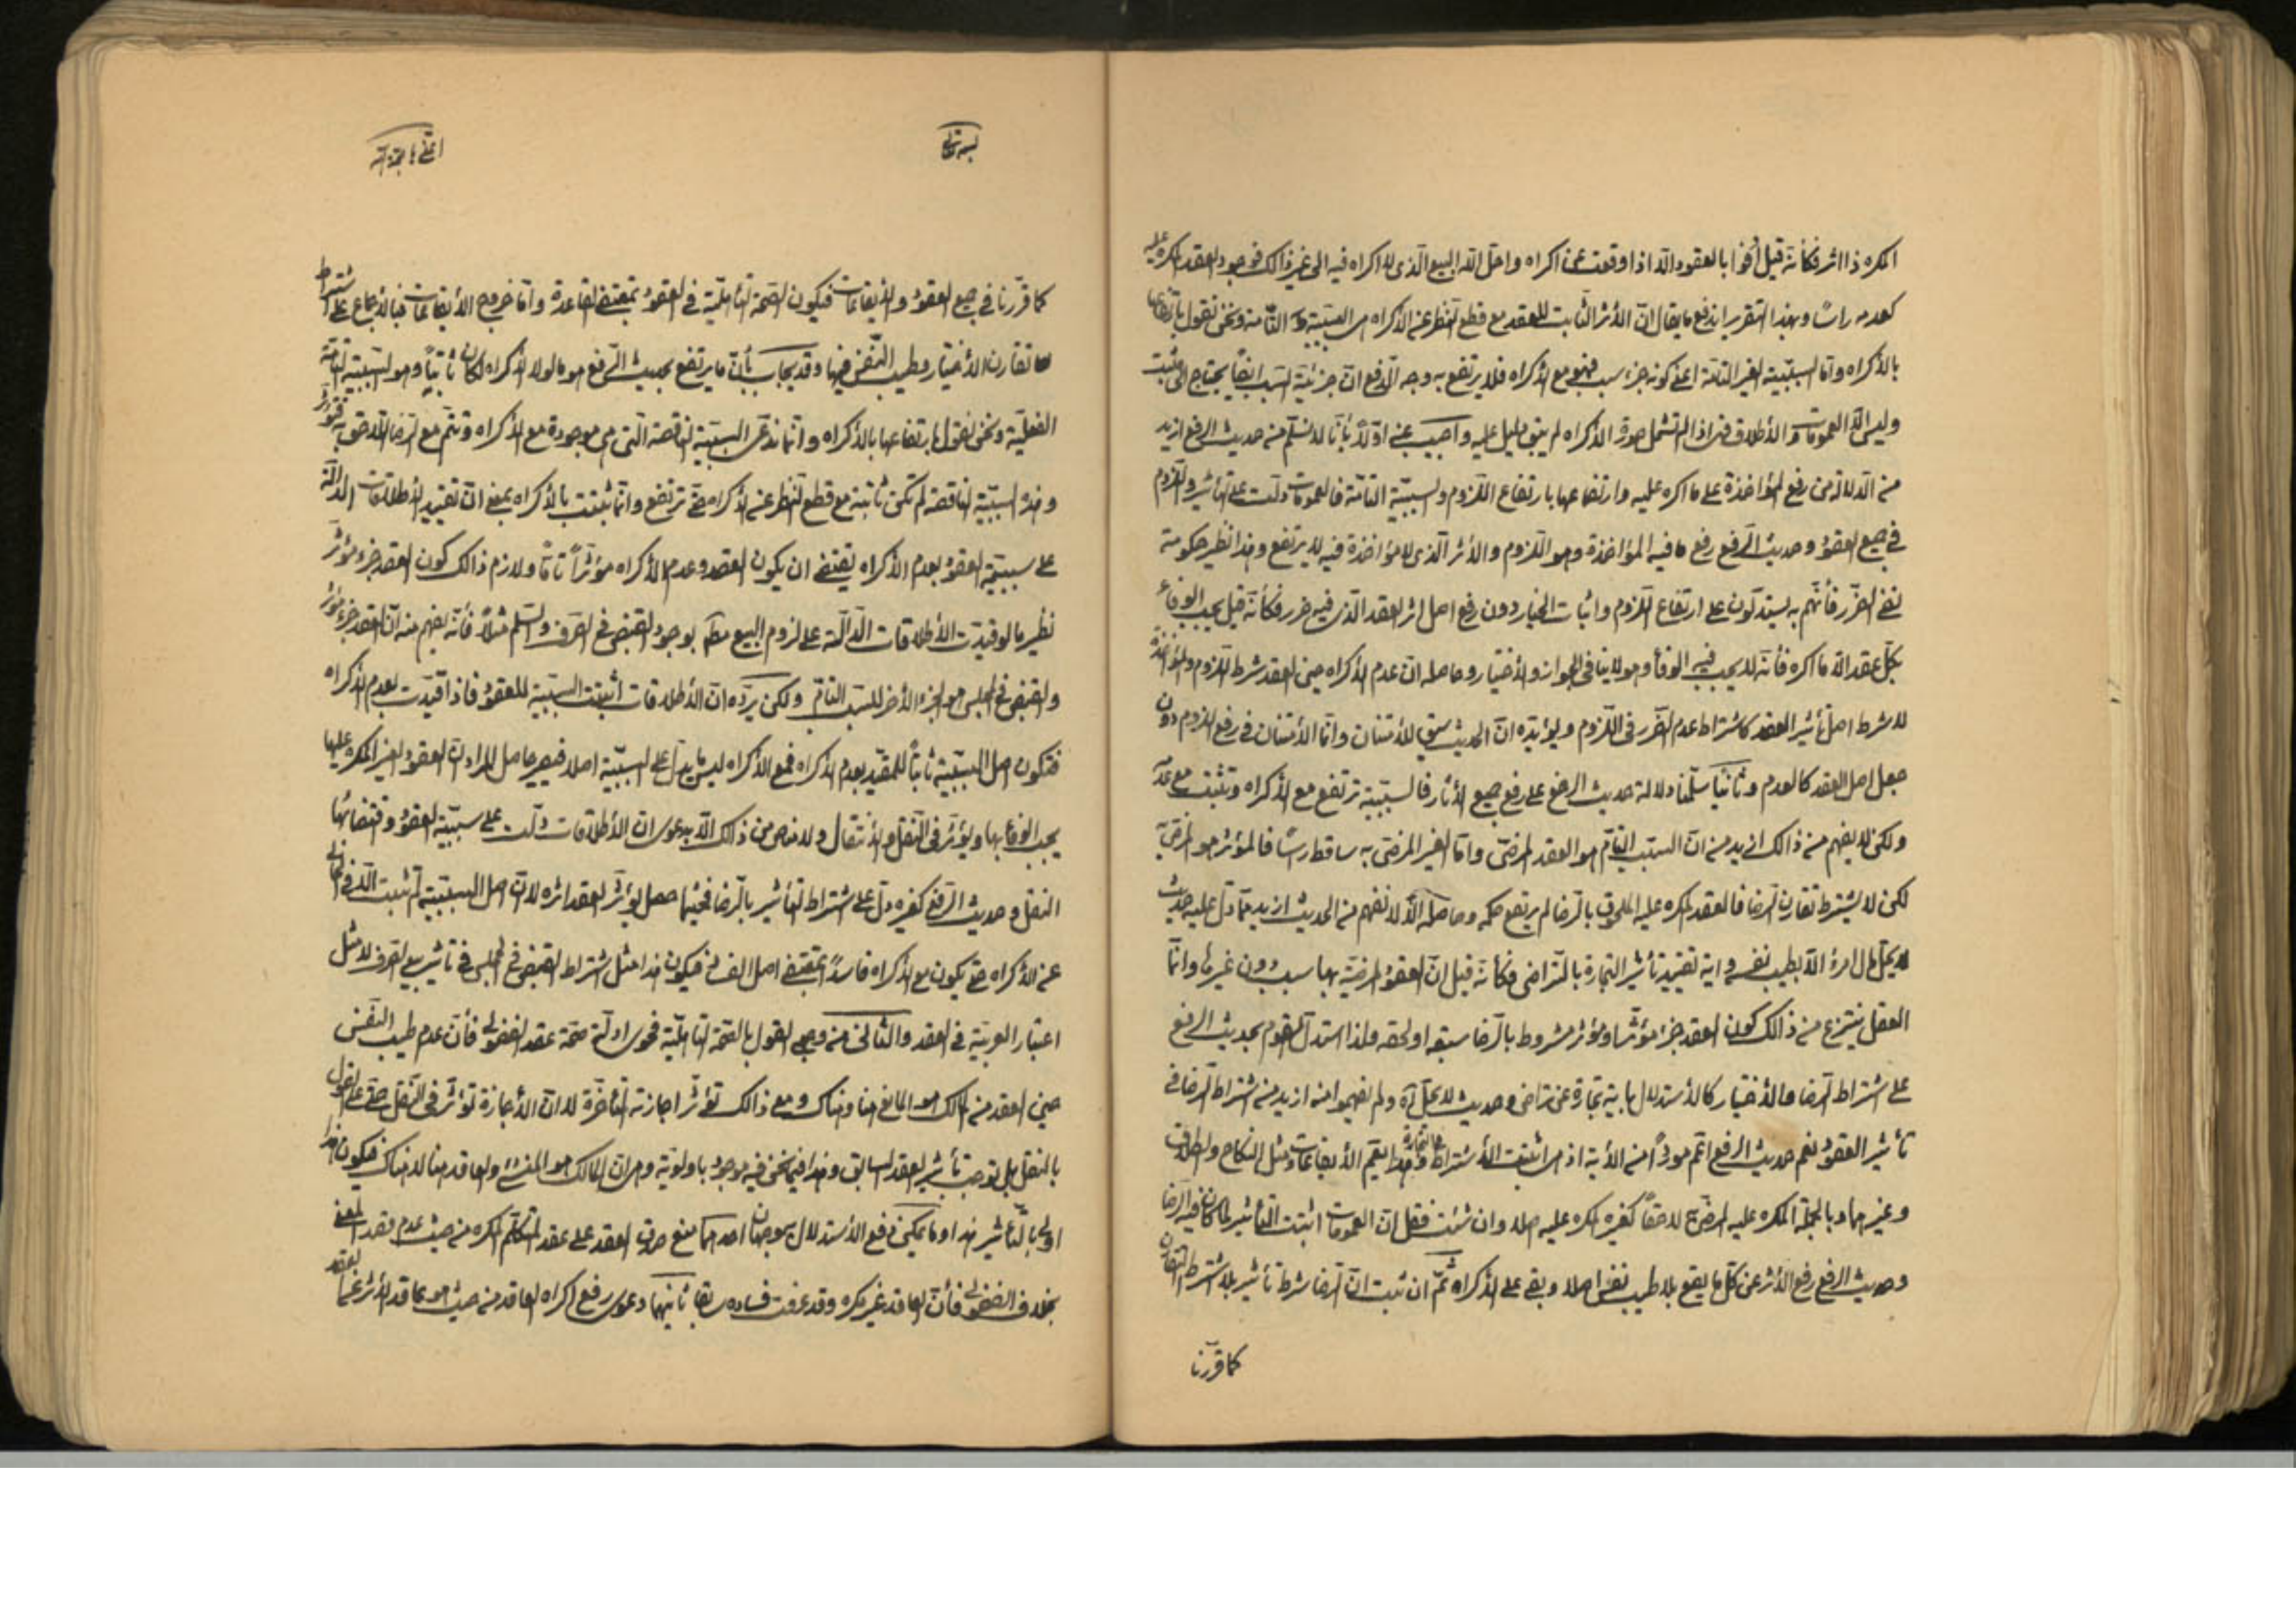 المكره ذا اثر فكأنه قيل أوفوا بالعقود الّا اذا وقعت عن اكراه واحل الله البيع الّذى لا اكراه فيه الى غير ذالك فوجود العقد المكره عليه
كعدمه راسًا وبهذا التقرير اندفع ما يقال انّ الأثر الثابت للعقد مع قطع النظر عن الاكراه هى السببيّة التّامة ونحن نقول بارتفاعها
بالأكراه وامّا السببيّة الغير التامّة اعنى كونه جزء سبب فهو مع الأكراه فلا يرتفع به وجه الدفع انّ جزئيّة السبب ايضًا يحتاج الى مثبت
وليس الّا العمومات والأطلاق فهى اذا لم تشمل صورة الأكراه لم يبق دليل عليه واجيب عنه اولًا بأنّا لا نسلّم من حديث الرفع ازيد
من الدلالة من رفع المؤاخذة على ما اكره عليه وارتفاعها بارتفاع اللّزوم والسببيّة التامّة فالعمومات دلّت على تأثير واللّزوم
فى جميع العقود وحديث الرفع رفع ما فيه المؤاخذة وهو اللّزوم والأثر الّذى لا مؤاخذة فيه لا يرتفع وهذا نظير حكومة
نفى الضّرر فأنّهم به يستدلّون على ارتفاع اللّزوم واثبات الخيار دون رفع اصل اثر العقد الّذى فيه ضرر فكأنّه قيل يجب الوفاء
بكلّ عقد الّا ما اكره فأنّه لا يجب فيه الوفاء وهو لا ينافى الجواز والأختيار وحاصله انّ عدم الأكراه حين العقد شرط اللّزوم والمؤاخذة
لا شرط اصل تأثير العقد كاشتراط عدم الضّرر فى اللّزوم ويؤيّده انّ الحديث سيق للأمتنان وانّما الأمتنان فى رفع اللزوم دون
جعل اصل العقد كالعدم وثانيًا سلّمنا دلالة حديث الرفع على رفع جميع الأثار فالسببيّة ترتفع مع الأكراه وتثبت مع عدمه
ولكن لا يفهم من ذالك ازيد من انّ السبب التامّ هو العقد المرضىّ وامّا الغير المرضىّ به ساقط راسًا فالمؤثر هو المرضىّ
لكن لا يشترط تقارن الرضا فالعقد المكره عليه الملحوق بالرضا لم يرتفع حكمه وحاصله الّا لا نفهم من الحديث ازيد ممّا دلّ عليه حديث
لا يحلّ مال امرء الّا بطيب نفسه واية تقييد تأثير التجارة بالتّراضى فكأنّه قيل انّ العقود المرضيّة بها سبب دون غيرها وانّما
العقل ينتزع من ذالك كون العقد جزء مؤثّر او مؤثر مشروط بالرضا سبقه او لحقه ولذا استدلّ القوم بحديث الرفع
على اشتراط الرضا والأختيار كالأستدلال باية تجارة عن تراض وحديث لا يحلّ آه ولم يفهموا منه ازيد من اشتراط الرضا فى
تأثير العقود نعم حديث الرفع اعمّ موردًا من الأية اذ هى اثبتت الأشتراط فى التجارة وهذا يعمّ الأيقاعات مثل النكاح والطلاق
وغيرهما وبالجملة المكره عليه المرضىّ لاحقًا كغيره المكره عليه اصلا وان شئت فقل انّ العمومات اثبتت التأثير لما كان فيه الرضا
وحديث الرفع رفع الأثر عن كلّ ما يقع بلا طيب نفس اصلا وبقى على الأكراه ثمّ ان ثبت انّ الرضا شرط تأثير بلا اشتراط التقارن
كما قرّرنا
كما قرّرنا فى جميع العقود والأيقاعات فيكون الصّحة التأهليّة فى العقود بمقتضى القاعدة وامّا خروج الأيقاعات فبالأجماع على اشتراط
تقارن الأختيار وطيب النّفس فيها وقد يجاب بأنّ ما يرتفع بحديث الرّفع هو ما لولا الأكراه لكان ثابتًا وهو السببيّة التامّة
الفعليّة ونحن نقول بارتفاعها بالأكراه وانّما ندعى السببيّة الناقصة الّتى هى موجودة مع الأكراه وتتمّ مع الرضا اللاحق به فتؤثر
وهذه السببيّة الناقصة لم تكن ثابتة مع قطع النظر عن الأكراه حتى ترتفع وانّما ثبتت بالأكراه بمعنى انّ تقييد الأطلاقات الدالّة
على سببيّة العقود بعدم الأكراه يقتضى ان يكون العقد وعدم الأكراه مؤثرًا تامًا ولازم ذالك كون العقد جزء مؤثر
نظير ما لو قيدت الأطلاقات الدّالة على لزوم البيع مط بوجود القبض فى الصرف والسّلم مثلًا فأنّه يفهم منه انّ العقد جزء مؤثر
والقبض فى المجلس هو الجزء الأخر للسبب التامّ ولكن يردّه انّ الأطلاقات اثبتت السببيّة للعقود فاذا قيّدت بعدم الأكراه
فتكون اصل السببيّة ثابتًا للمقيّد بعدم الأكراه فمع الأكراه ليس ما يدلّ على السببيّة اصلا فيصير حاصل المراد انّ العقود الغير المكره عليها
يجب الوفاء بها ويؤثّر فى النّقل والأنتقال ولا مناص من ذلك الّا بدعوى انّ الأطلاقات دلّت على سببيّة العقود واقتضائها
النقل وحديث الرّفع كغيره دلّ على اشتراط التأثير بالرضا فحيثما حصل يؤثر العقد اثره لا انّ اصل السببيّة لم تثبت الّا فى الخالى
عن الأكراه حتى يكون مع الأكراه فاسدًا بمقتضى اصل الفساد فيكون هذا مثل اشتراط القبض فى المجلس فى تأثير بيع الصرف لا مثل
اعتبار العربيّة فى العقد والثالث من وجوه القول بالصّحة التأهليّة فحوى ادلّة صحة عقد الفضولى فأنّ عدم طيب النّفس
حين العقد من المالك هو المانع هنا وهناك ومع ذالك تؤثر اجازته المتأخّرة لا انّ الأجازة تؤثر فى النّقل حتى على القول
بالنقل بل توجب تأثير العقد السابق وهذا فيما نحن فيه موجود باولويّة وهى انّ المالك هو المنشئ والعاقد هنا لا هناك فيكون هذا
اولى بالتّأثير هذا وما يمكن دفع الأستدلال بوجهان احدهما منع صدق العقد على عقد المتكلّم المكره من حيث عدم قصد المعنى
بخلاف الفضولى فأنّ العاقد غير مكره وقد عرفت فساده سابقا ثانيهما دعوى رفع اكراه العاقد من حيث هو عاقد الأثر عن العقد